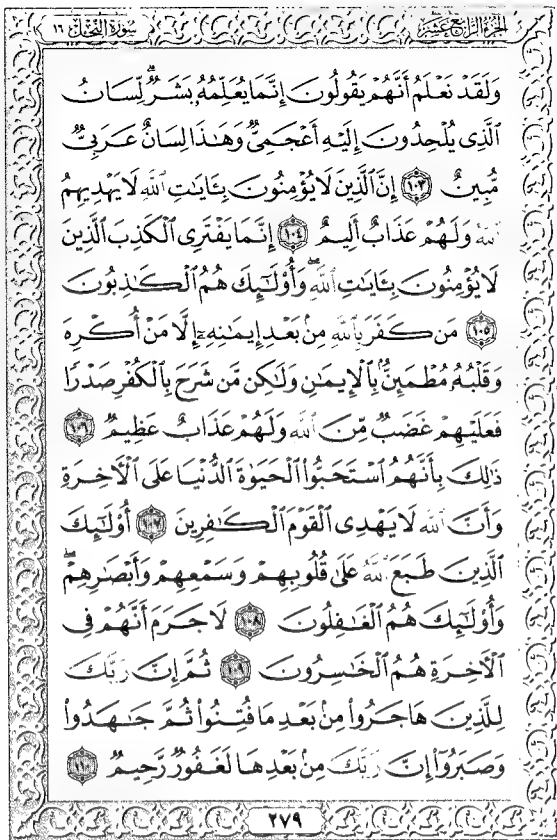 الجزء الرابع عشر
سورة النحل ١٦
وَلَقَدْ نَعْلَمُ أَنَّهُمْ يَقُولُونَ إِنَّمَا يُعَلِّمُهُۥ بَشَرٌ ۗ لِّسَانُ
ٱلَّذِى يُلْحِدُونَ إِلَيْهِ أَعْجَمِىٌّ وَهَـٰذَا لِسَانٌ عَرَبِىٌّ
مُّبِينٌ ١٠٣ إِنَّ ٱلَّذِينَ لَا يُؤْمِنُونَ بِـَٔايَـٰتِ ٱللَّهِ لَا يَهْدِيهِمُ
ٱللَّهُ وَلَهُمْ عَذَابٌ أَلِيمٌ ١٠٤ إِنَّمَا يَفْتَرِى ٱلْكَذِبَ ٱلَّذِينَ
لَا يُؤْمِنُونَ بِـَٔايَـٰتِ ٱللَّهِ ۖ وَأُو۟لَـٰٓئِكَ هُمُ ٱلْكَـٰذِبُونَ
١٠٥ مَن كَفَرَ بِٱللَّهِ مِنۢ بَعْدِ إِيمَـٰنِهِۦٓ إِلَّا مَنْ أُكْرِهَ
وَقَلْبُهُۥ مُطْمَئِنٌّۢ بِٱلْإِيمَـٰنِ وَلَـٰكِن مَّن شَرَحَ بِٱلْكُفْرِ صَدْرًا
فَعَلَيْهِمْ غَضَبٌ مِّنَ ٱللَّهِ وَلَهُمْ عَذَابٌ عَظِيمٌ ١٠٦
ذَٰلِكَ بِأَنَّهُمُ ٱسْتَحَبُّوا۟ ٱلْحَيَوٰةَ ٱلدُّنْيَا عَلَى ٱلْـَٔاخِرَةِ
وَأَنَّ ٱللَّهَ لَا يَهْدِى ٱلْقَوْمَ ٱلْكَـٰفِرِينَ ١٠٧ أُو۟لَـٰٓئِكَ
ٱلَّذِينَ طَبَعَ ٱللَّهُ عَلَىٰ قُلُوبِهِمْ وَسَمْعِهِمْ وَأَبْصَـٰرِهِمْ ۖ
وَأُو۟لَـٰٓئِكَ هُمُ ٱلْغَـٰفِلُونَ ١٠٨ لَا جَرَمَ أَنَّهُمْ فِى
ٱلْـَٔاخِرَةِ هُمُ ٱلْخَـٰسِرُونَ ١٠٩ ثُمَّ إِنَّ رَبَّكَ
لِلَّذِينَ هَاجَرُوا۟ مِنۢ بَعْدِ مَا فُتِنُوا۟ ثُمَّ جَـٰهَدُوا۟
وَصَبَرُوٓا۟ إِنَّ رَبَّكَ مِنۢ بَعْدِهَا لَغَفُورٌ رَّحِيمٌ ١١٠
٢٧٩